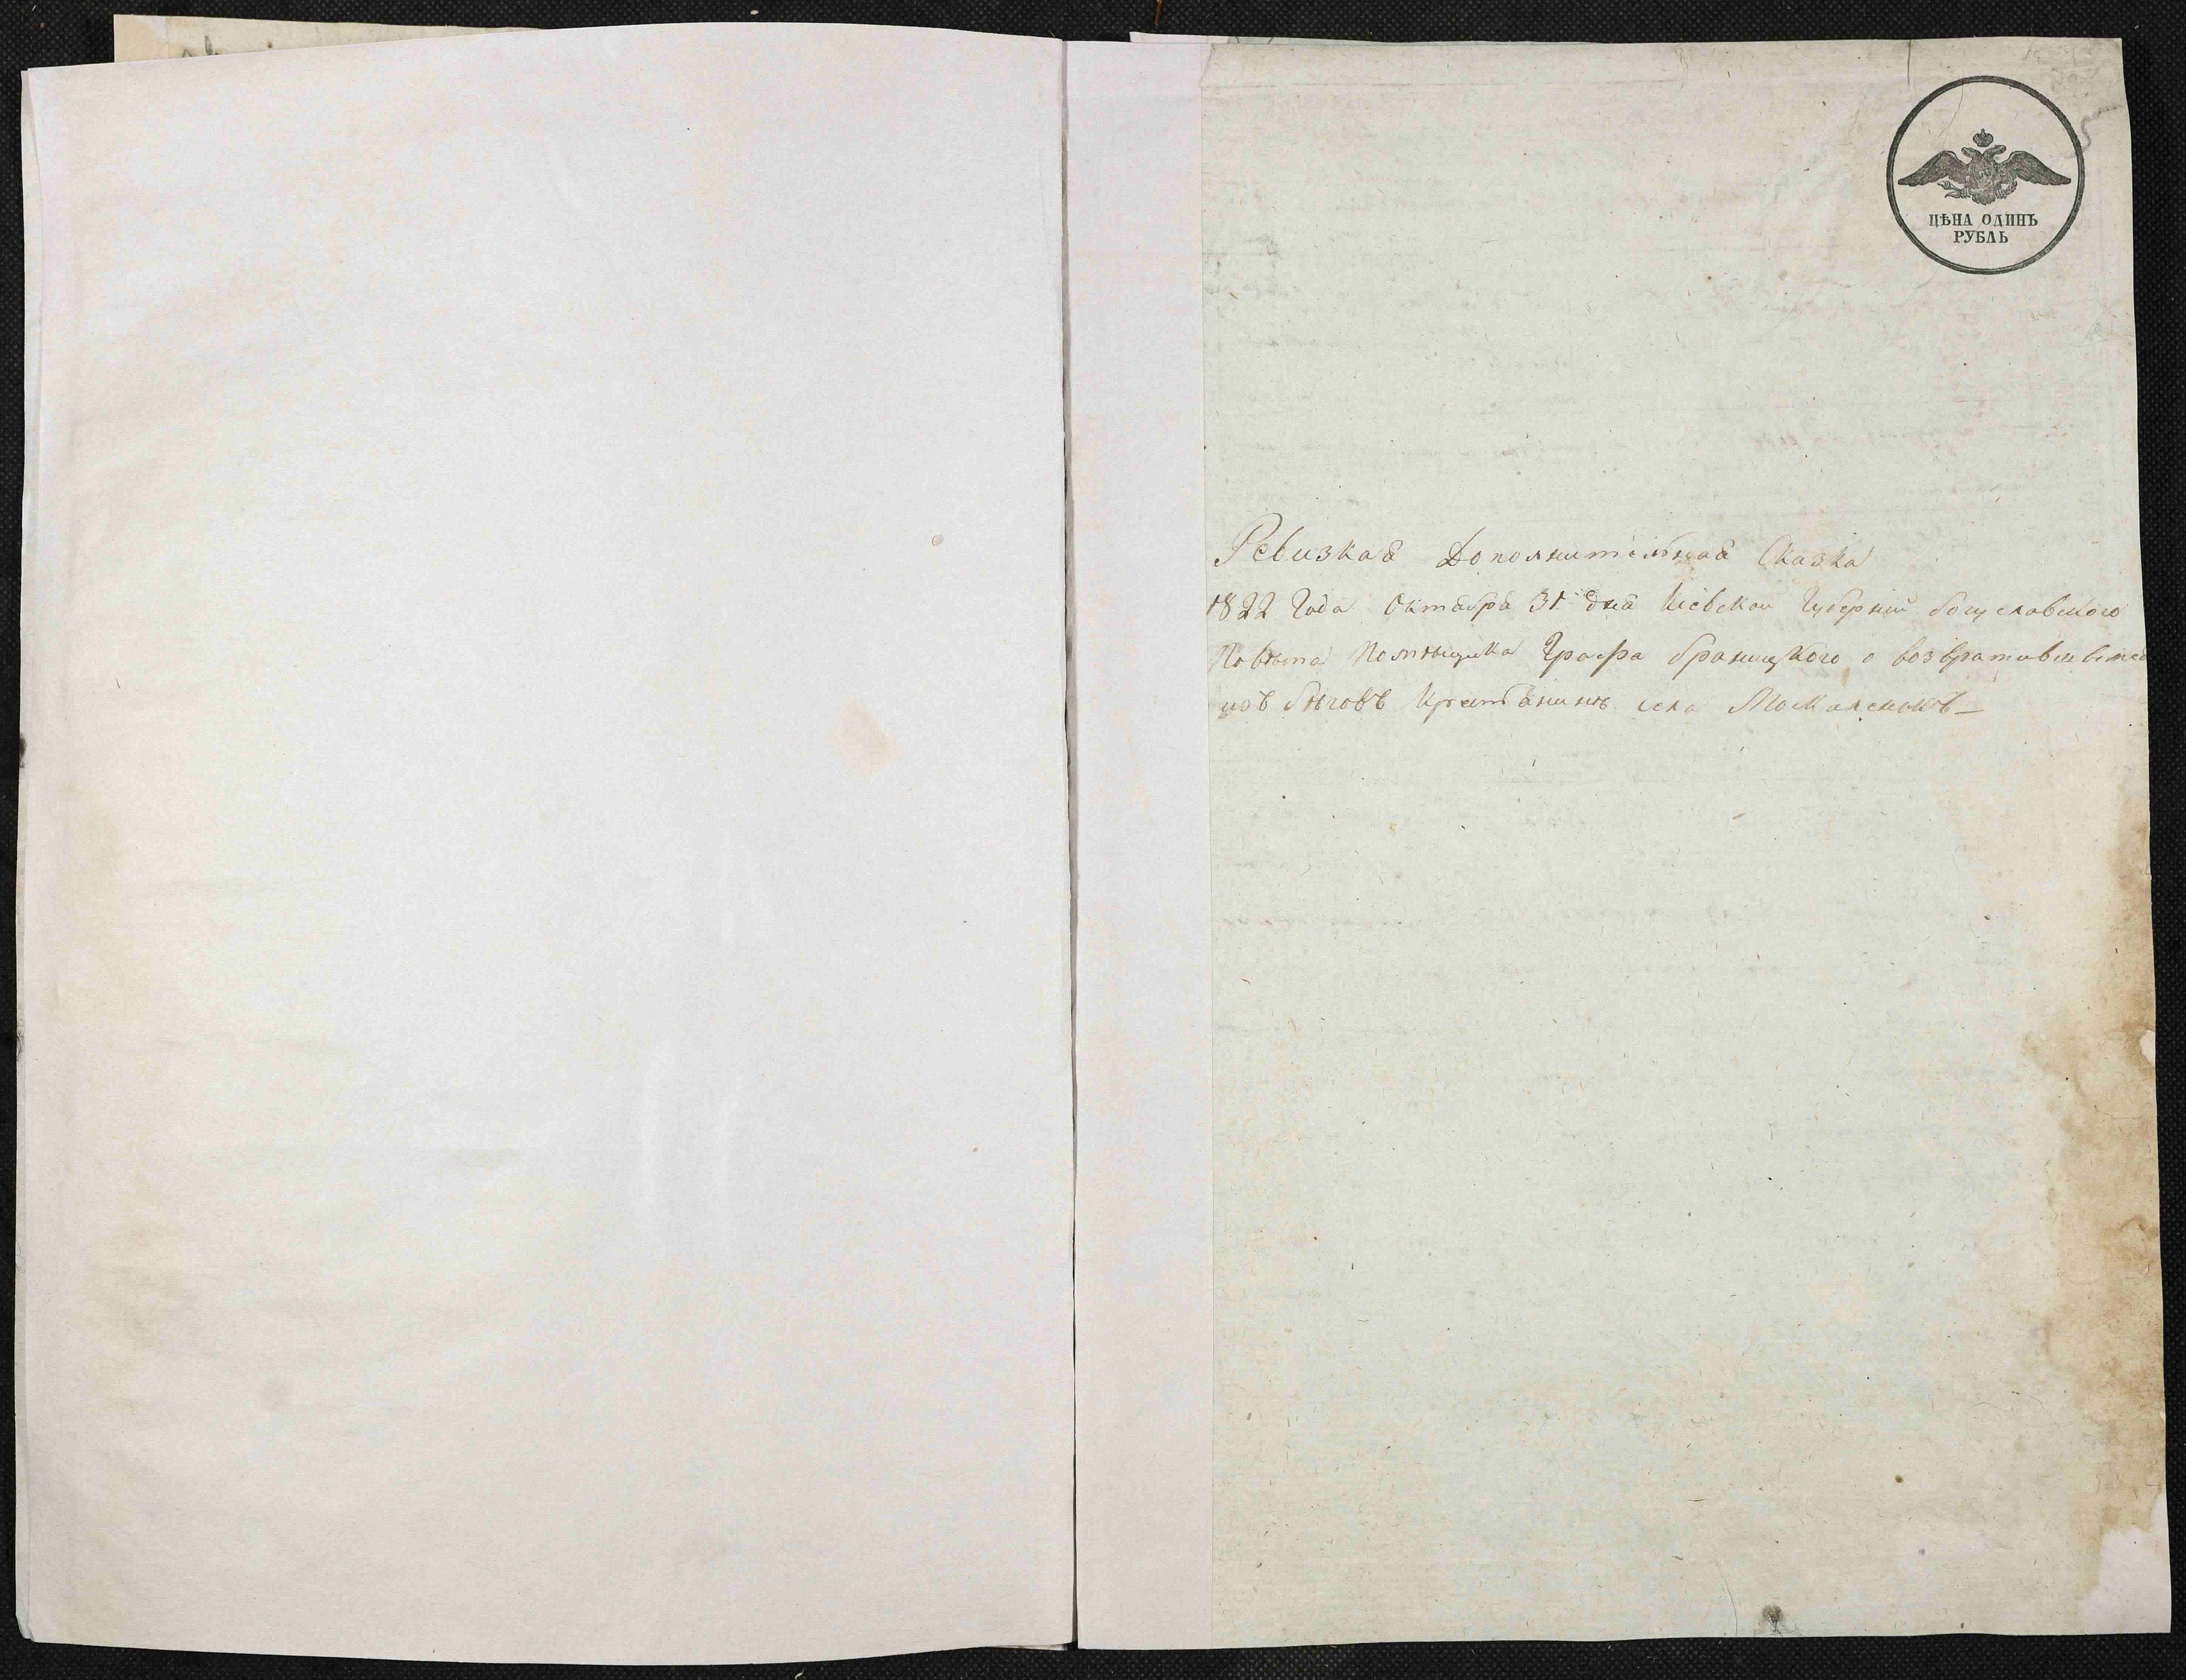 ЦѢНА ОДИНЪ
РУБЛЬ
Ревизкая Дополнительная Сказка
1822 Года Октября 31 дня Киевской Губернии Богуславского
Повѣта Помѣщика Графа Браницкого о возвратившемся
изъ бѣговъ Крестьянинѣ села